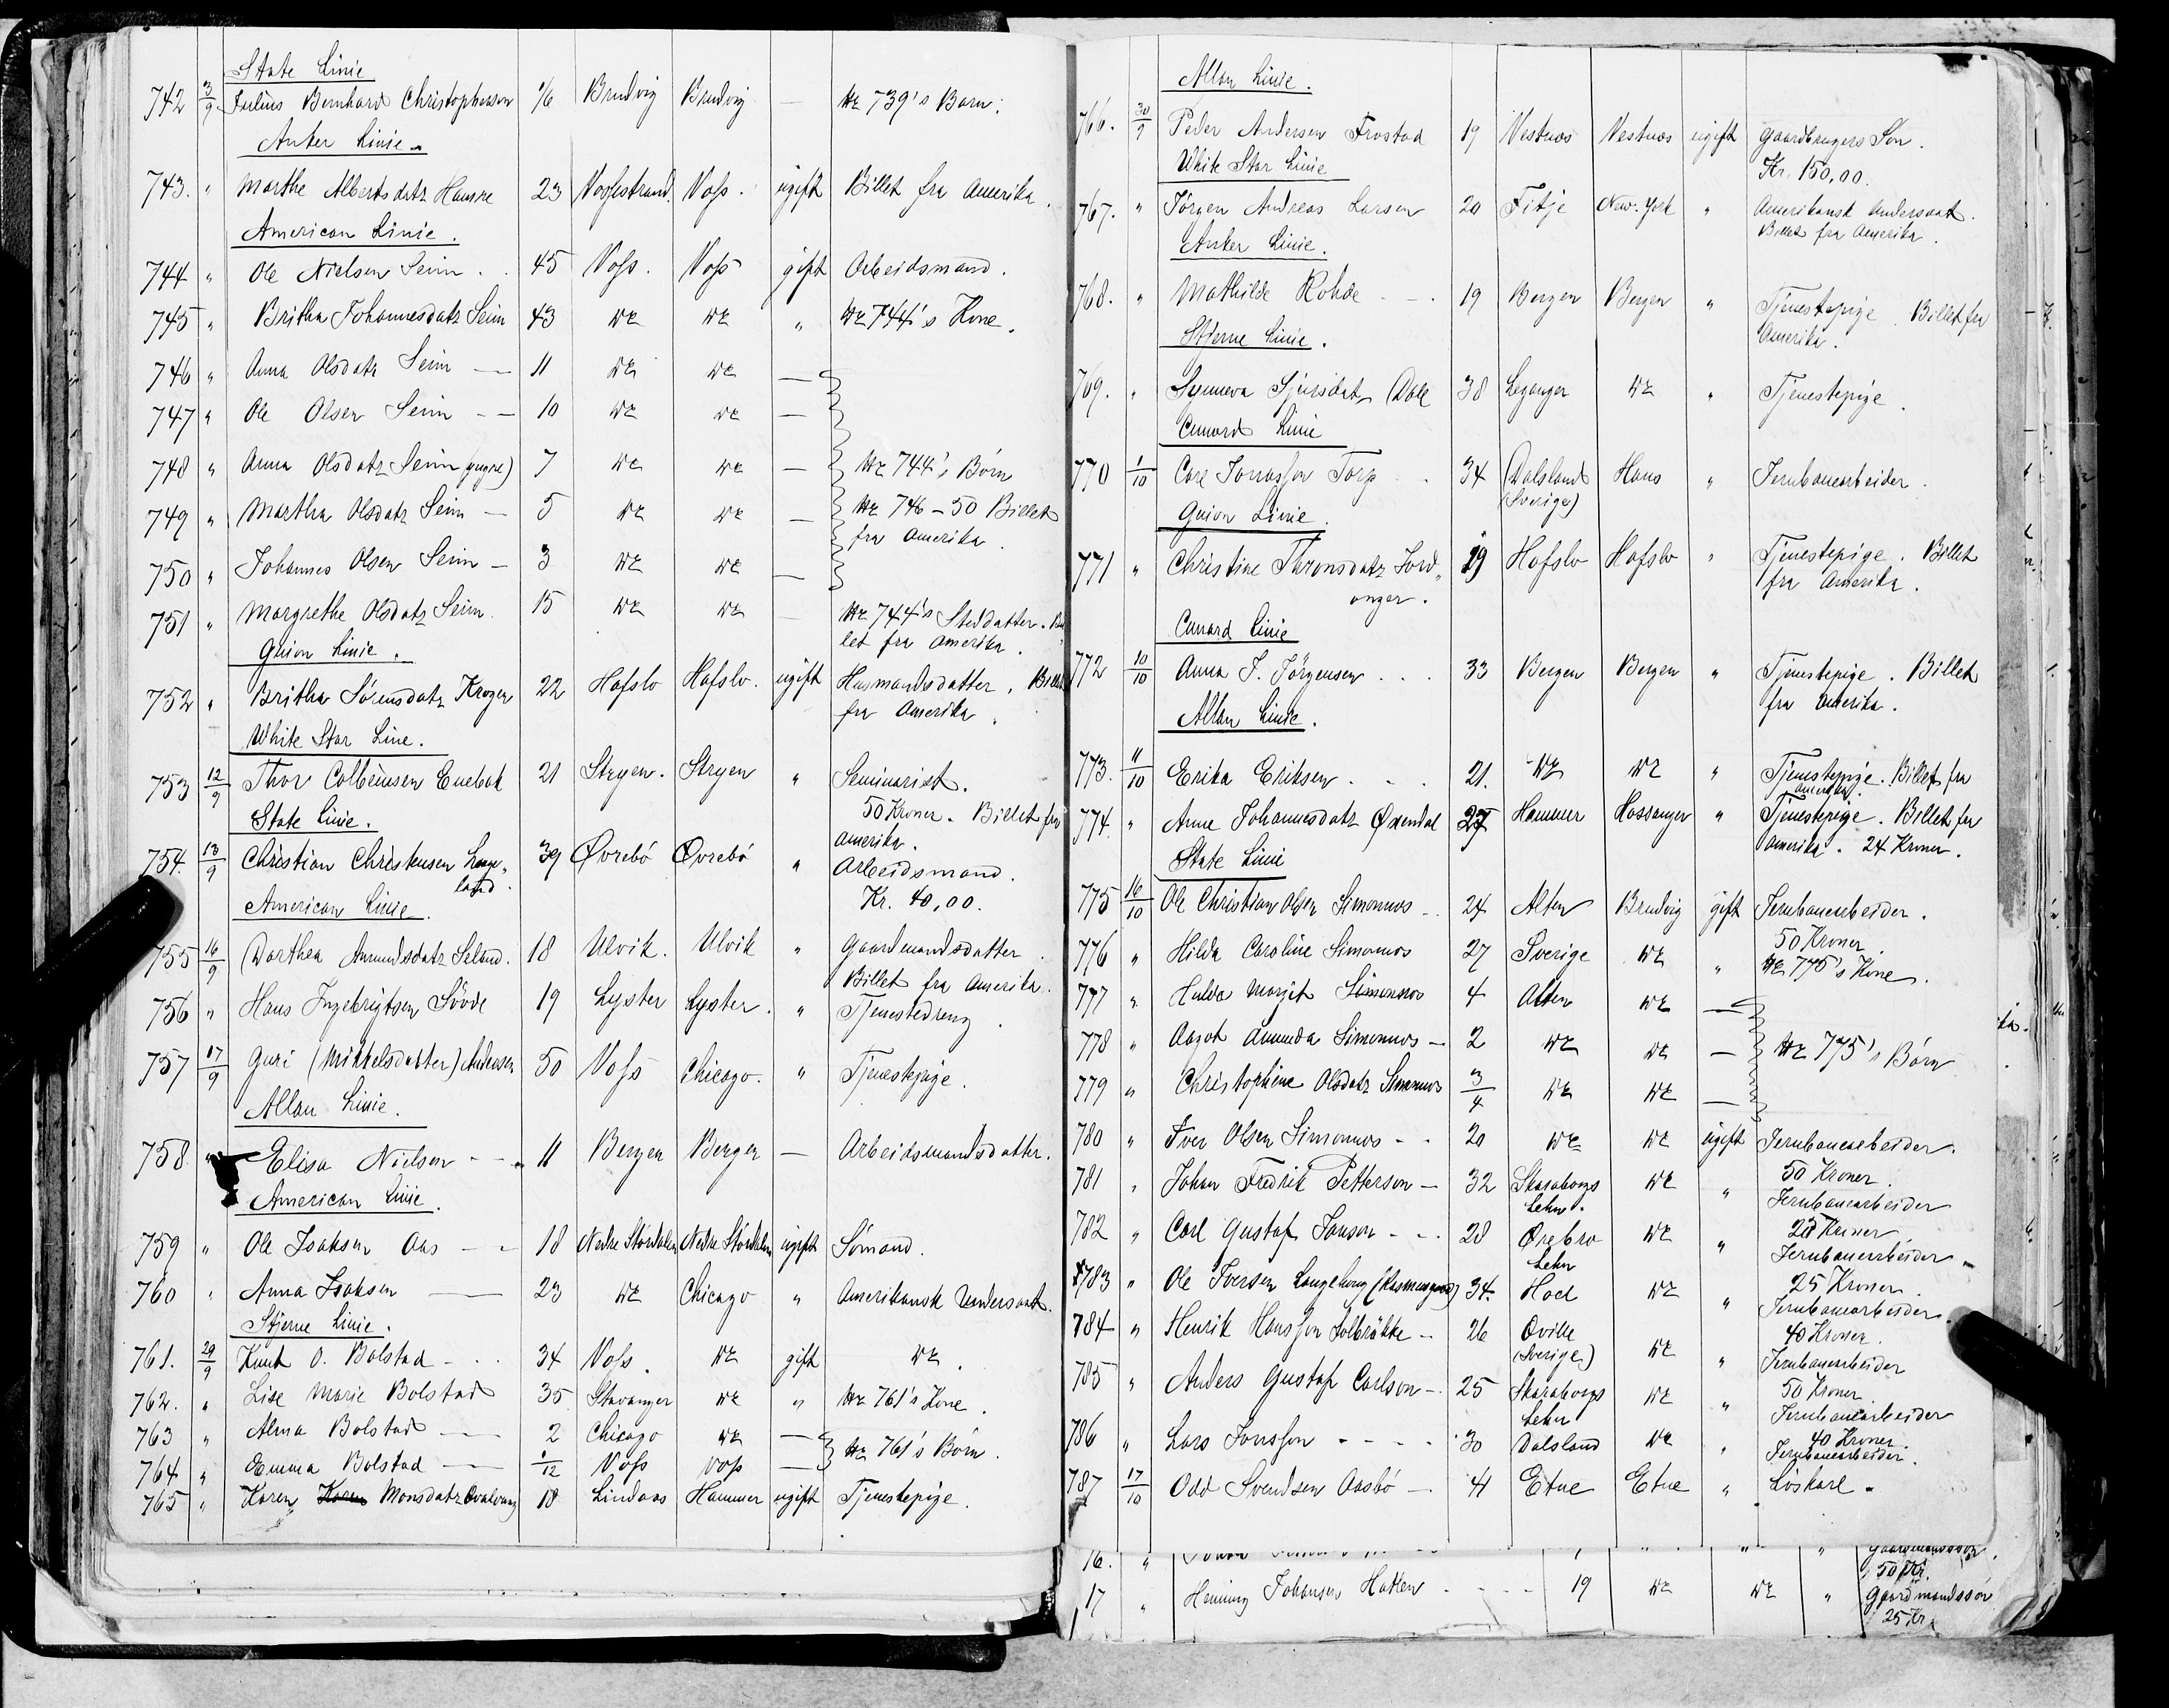 State Linie
742 3/9 Julius Bernhard Christophersen 1/6 Brudvig Brudvig — No 739's Barn.
Anker Linie.
743. " Marthe Albertsdatr Hausne 23 Vossestrand Voss. ugift Billet fra Amerika.
American Linie.
744 " Ole Nielsen Seim 45 Voss. Voss gift Arbeidsmand.
745 " Britha Johannesdatr Seim 43 do do " No 744's Kone.
746 " Anna Olsdatr Seim — 11 do do —
747 " Ole Olsen Seim — 10 do do —
748 " Anna Olsdatr Seim (yngre) 7 do do — No 744's Børn
749 " Martha Olsdatr Seim — 5 do do — No 746-50 Billet
fra Amerika.
750 " Johannes Olsen Seim — 3 do do —
751 " Margrethe Olsdatr Seim 15 do do — No 744's Steddatter. Bil
let fra Amerika.
Guion Linie.
752 " Britha Sørensdatr Krogen 22 Hafslo Hafslo. ugift Husmandsdatter. Billet
fra Amerika.
White Star Line.
753 12/9 Thor Colbeinsen Enebak 21 Stryen. Stryen " Seminarist.
50 Kroner. Billet fra
Amerika.
State Linie.
754. 13/9 Christian Christensen Hauge-
land. 39 Øvrebø Øvrebø " Arbeidsmand.
Kr. 40,00.
American Linie.
755 16/9 Dorthea Amundsdatr Seland. 18 Ulvik. Ulvik " Gaardmandsdatter.
Billet fra Amerika.
756 " Hans Ingebrigtsen Søvde 19 Lyster Lyster. " Tjenestedreng.
757 17/9 Guri (Mikkelsdatter) Andersen 50 Voss Chicago. " Tjenestepige.
Allan Linie.
758 " Elisa Nielsen 11 Bergen Bergen — Arbeidsmandsdatter.
American Linie.
759 " Ole Isaksen Aas 18 Nedre Stördalen Nedre Stördalen ugift Sömand.
760 " Anna Isaksen 23 do Chicago " Amerikansk Undersaat.
Stjerne Linie.
761. 29/9 Knut O. Bolstad 34 Voss. do gift do.
762. " Lise Marie Bolstad 35 Stavanger do " No 761's Kone.
763 " Alma Bolstad 2 Chicago do —
No 761's Børn.
764 " Emma Bolstad 1/12 Voss Voss —
765 " Karen Monsdatr 18 Lindaas Hammer ugift Tjenestepige.
Allan Linie.
766. 30/9 Peder Andersen Frostad 19 Vestnæs Vestnæs ugift Gaardbrugers Søn.
Kr. 150,00.
White Star Linie
767. " Jörgen Andreas Larsen 20 Fitje New-York " Amerikansk Undersaat.
Billet fra Amerika.
Anker Linie.
768. " Mathilde Rohde 19 Bergen Bergen " Tjenestepige. Billet fra
Amerika.
Stjerne Linie.
769. " Synneva Sjursdatr Dale 38 Leganger do " Tjenestepige.
Cunard Linie
770 1/10 Carl Jonasson Torp 34 Dalsland
(Sverige) Haus " Jernbanearbeider.
Guion Linie.
771 " Christine Thronsdatr Jord-
anger. 19 Hafslo Hafslo " Tjenestepige. Billet
fra Amerika.
Cunard Linie
772 10/10 Anna J. Jörgensen 33 Bergen Bergen " Tjenestepige. Billet
fra Amerika.
Allan Linie.
773. 11/10 Erika Eriksen 21. do do " Tjenestepige. Billet fra
Amerika.
774. " Anne Johannesdatr Øxendal 27 Hammer Hosanger " Tjenestepige. Billet fra
Amerika. 24 Kroner.
State Linie
775 16/10 Ole Christian Olsen Simonnæs 24 Alten Brudvig gift Jernbanearbeider.
50 Kroner.
776 " Hilda Caroline Simonnæs 27 Sverige do " No 775's Kone.
777 " Hulda Marjit Simonnæs 4 Alten do —
778 " Aagot Amunda Simonnæs 2 do do — No 775's Børn
779 " Christophine Olsdatr Simonnæs 3/4 do do —
780 " Iver Olsen Simonnæs 20 do do ugift Jernbanearbeider.
50 Kroner.
781 " Johan Fredrik Petterson 32 Skaraborgs
Lehn. do " Jernbanearbeider
20 Kroner
782 " Carl Gustaf Janson 28 Ørebro
Lehn do " Jernbanearbeider
25 Kroner.
783 " Ole Iversen Langehaug 34. Hoel do " Jernbanearbeider
40 Kroner.
784 " Henrik Hansson Solbräkke 26 Qville
(Sverige) do " Jernbanearbeider
50 Kroner
785 " Anders Gustaf Carlson 25 Skaraborgs
Lehn do " Jernbanearbeider
40 Kroner.
786 " Lars Jonsson 30 Dalsland do " Jernbanearbeider.
787 17/10 Odd Svendsen Aasbø 41 Etne Etne " Löskarl.
16. " " " Gaardmandssøn.
50 Kr.
17 " Henning Johansen Hatlen 19 do do " Gaardmandssøn
25 Kr